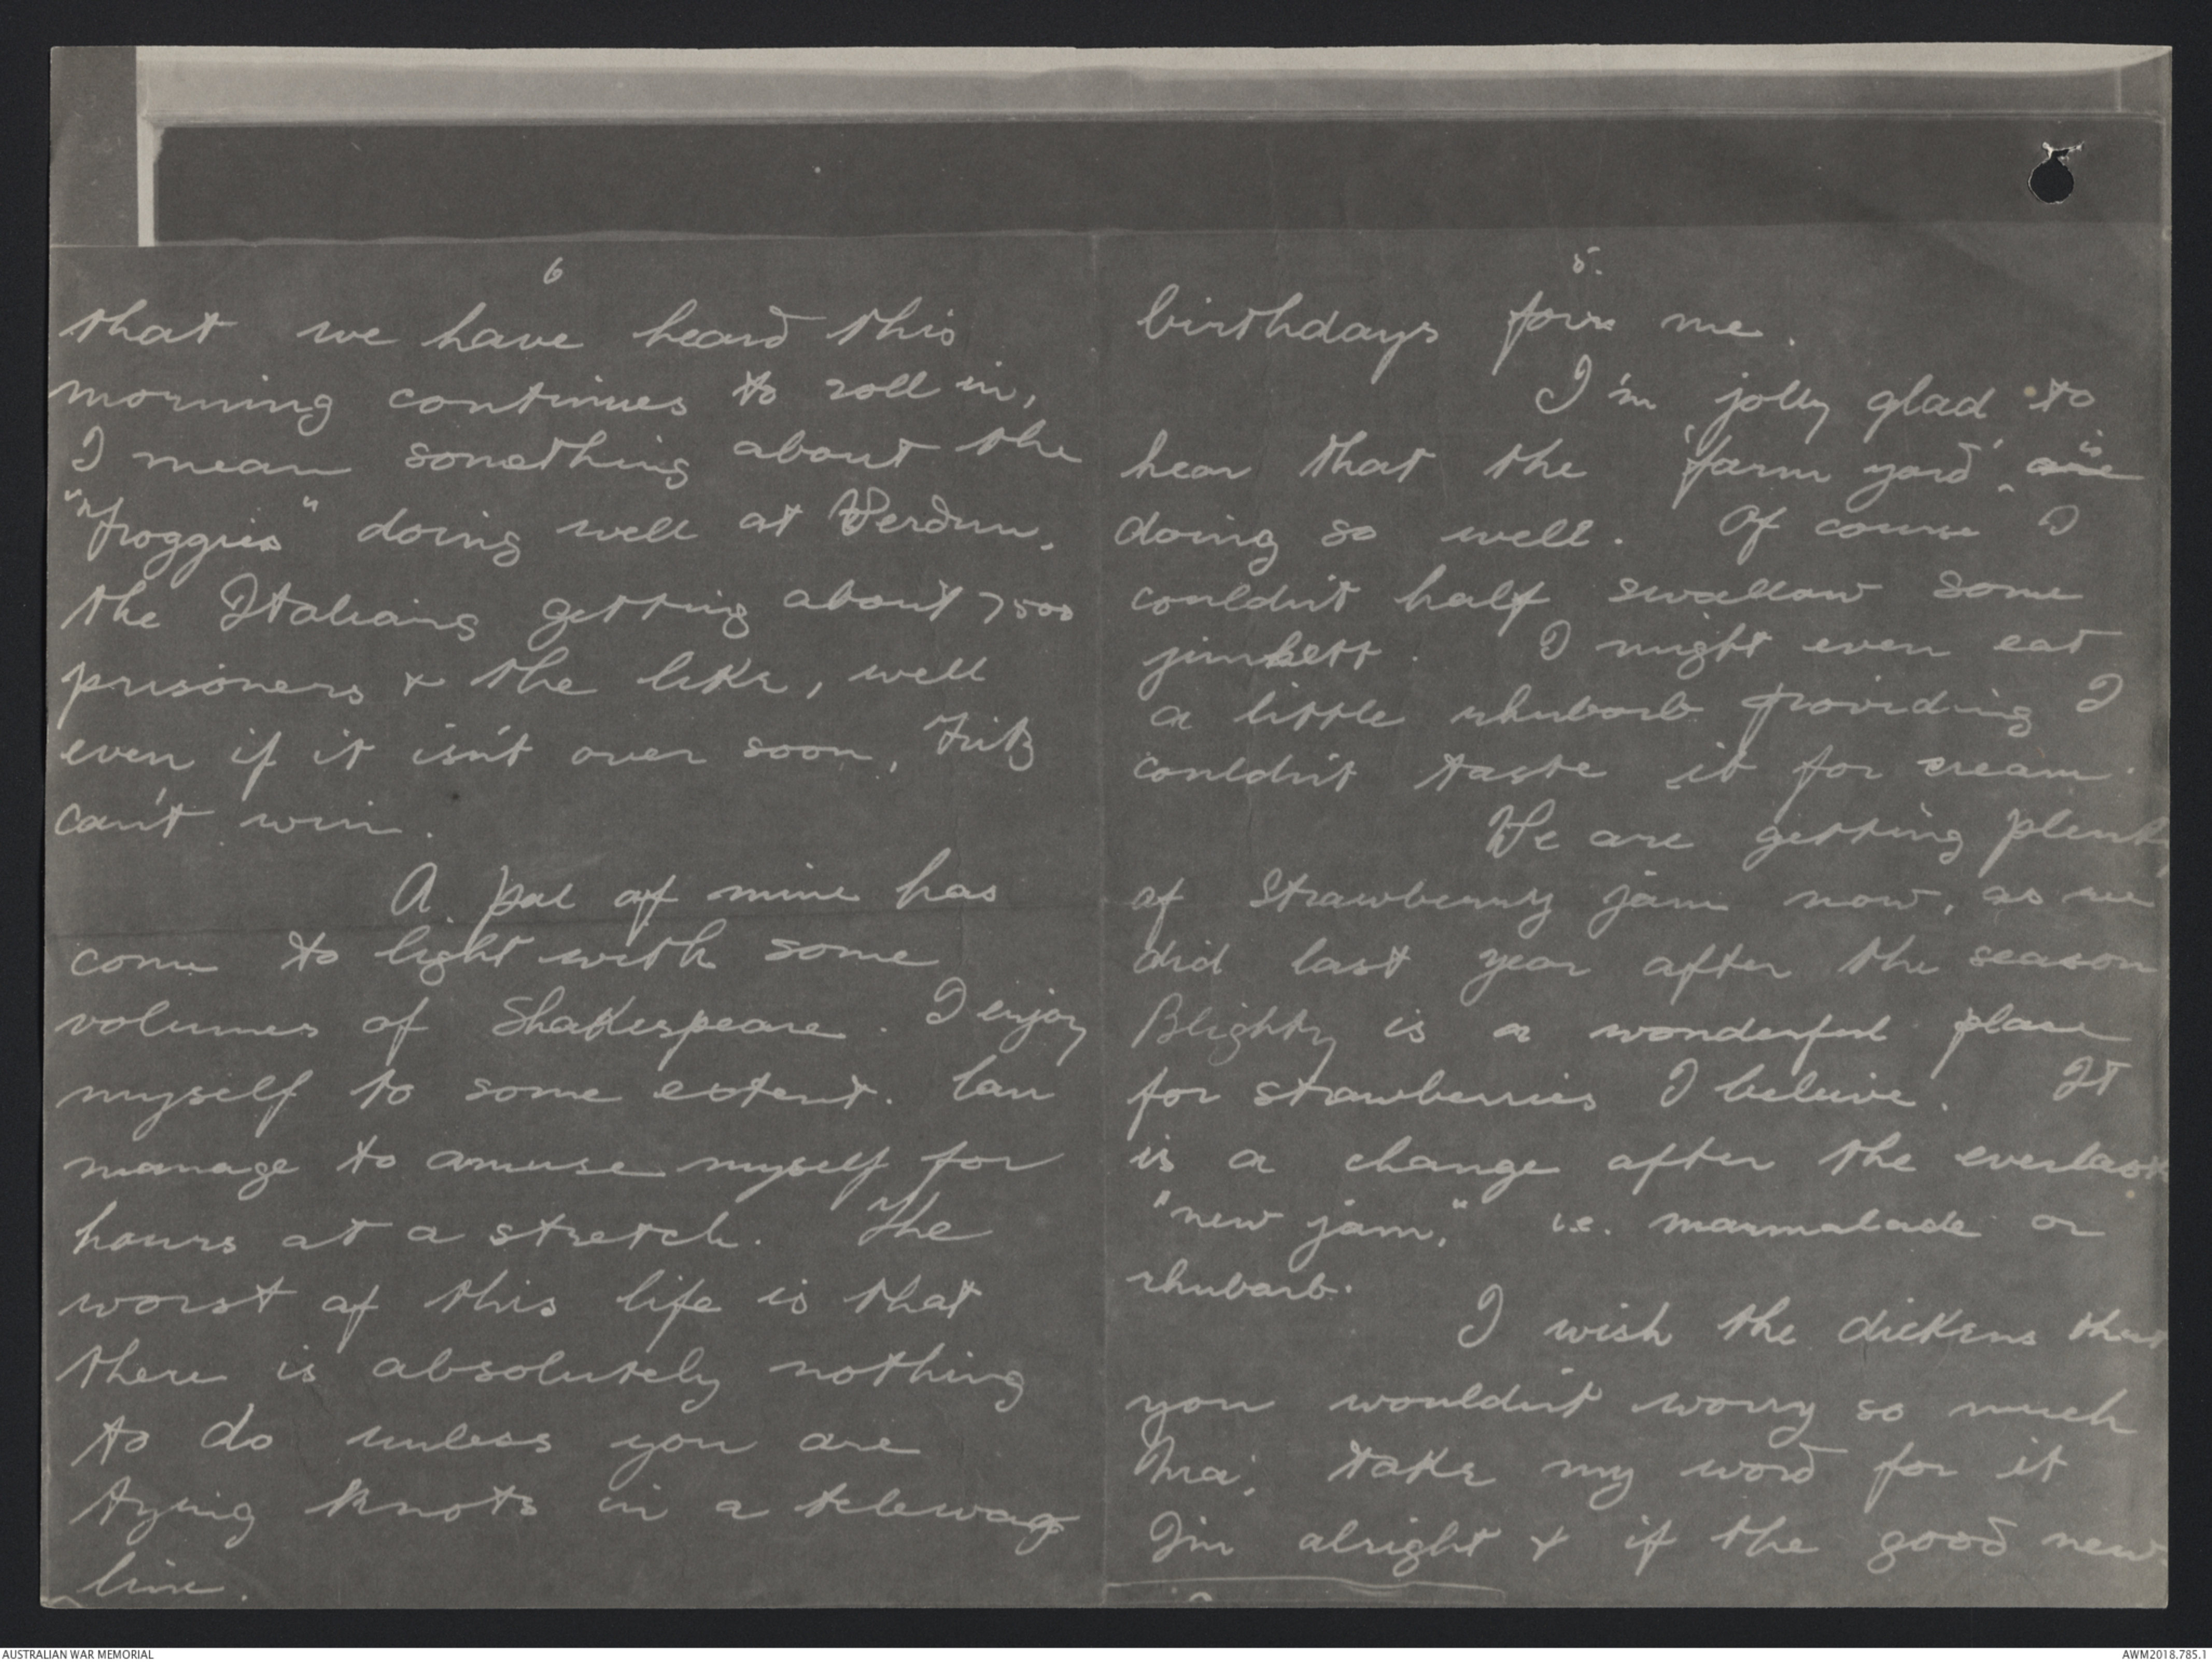 5.
birthdays for me.
I'm jolly glad to
hear that the 'farm yard' is are
doing so well. Of course I
couldn't half swallow some
junkett. I might even eat
a little rhubarb providing I
couldn't taste it for cream.
We are getting plenty
of Strawberry jam now, as we
did last year after the season
Blighty is a wonderful place
for strawberries I beleive. It
is a change after the everlast
"new jam," i.e. marmalade or
rhubarb.
I wish the dickens that
you wouldn't worry so much
Ma, take my word for it
I'm alright & if the good news
6
that we have heard this
morning continues to roll in,
I mean something about the
"froggies" doing well at Verdun,
the Italians getting about 7500
prisoners & the like, well
even if it isn't over soon, Fritz
can't win.
A pal of mine has
come to light with some
volumes of Shakespeare. I enjoy
myself to some extent. Can
manage to amuse myself for
hours at a stretch. The
worst of this life is that
there is absolutely nothing
to do unless you are
tying knots in a
line.
AUSTRALIAN WAR MEMORIAL
AWM2018.785.1